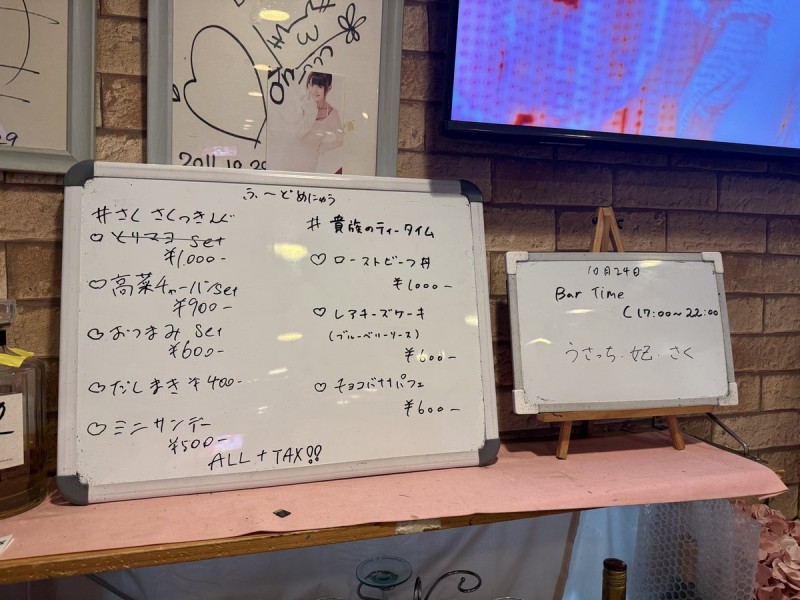 2011.10.29
ふ〜どめにゅう
#さくさくっきんぐ
♡ とりマヨ set
¥1,000-
♡ 高菜チャーハンset
¥900-
♡ おつまみ set
¥600-
♡ だしまき ¥400-
♡ ミニサンデー
¥500-
# 貴族のティータイム
♡ ローストビーフ丼
¥1000-
♡ レアチーズケーキ
(ブルーベリーソース)
¥600-
♡ チョコバナナパフェ
¥600-
ALL + TAX!!
10月24日
Bar Time
(17:00~22:00
うさっち・妃・さく